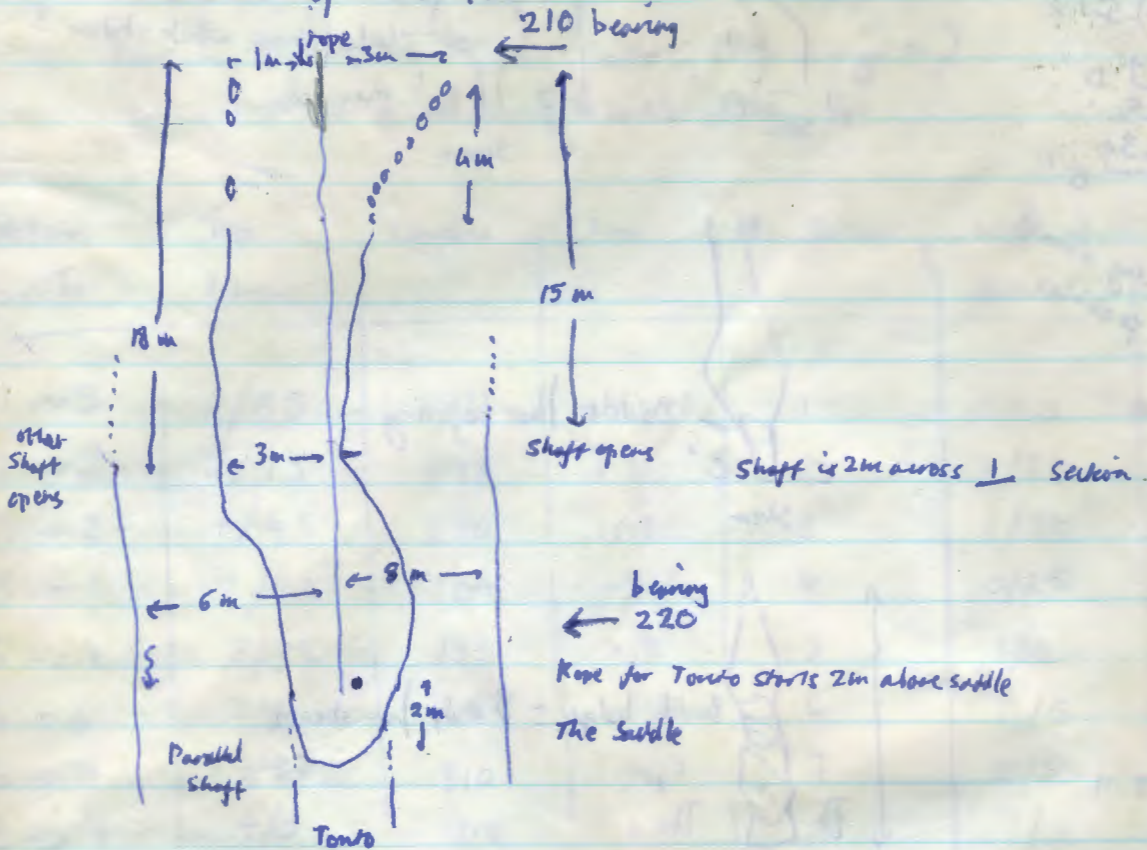 210 bearing
rope
1m 3m
4m
15 m
18 m
other
shaft
opens
3m
Shaft opens
Shaft is 2m across ⊥ section
6 m
8 m
bearing
220
Rope for Tonto starts 2m above saddle
2m
The Saddle
Parallel
Shaft
Tonto